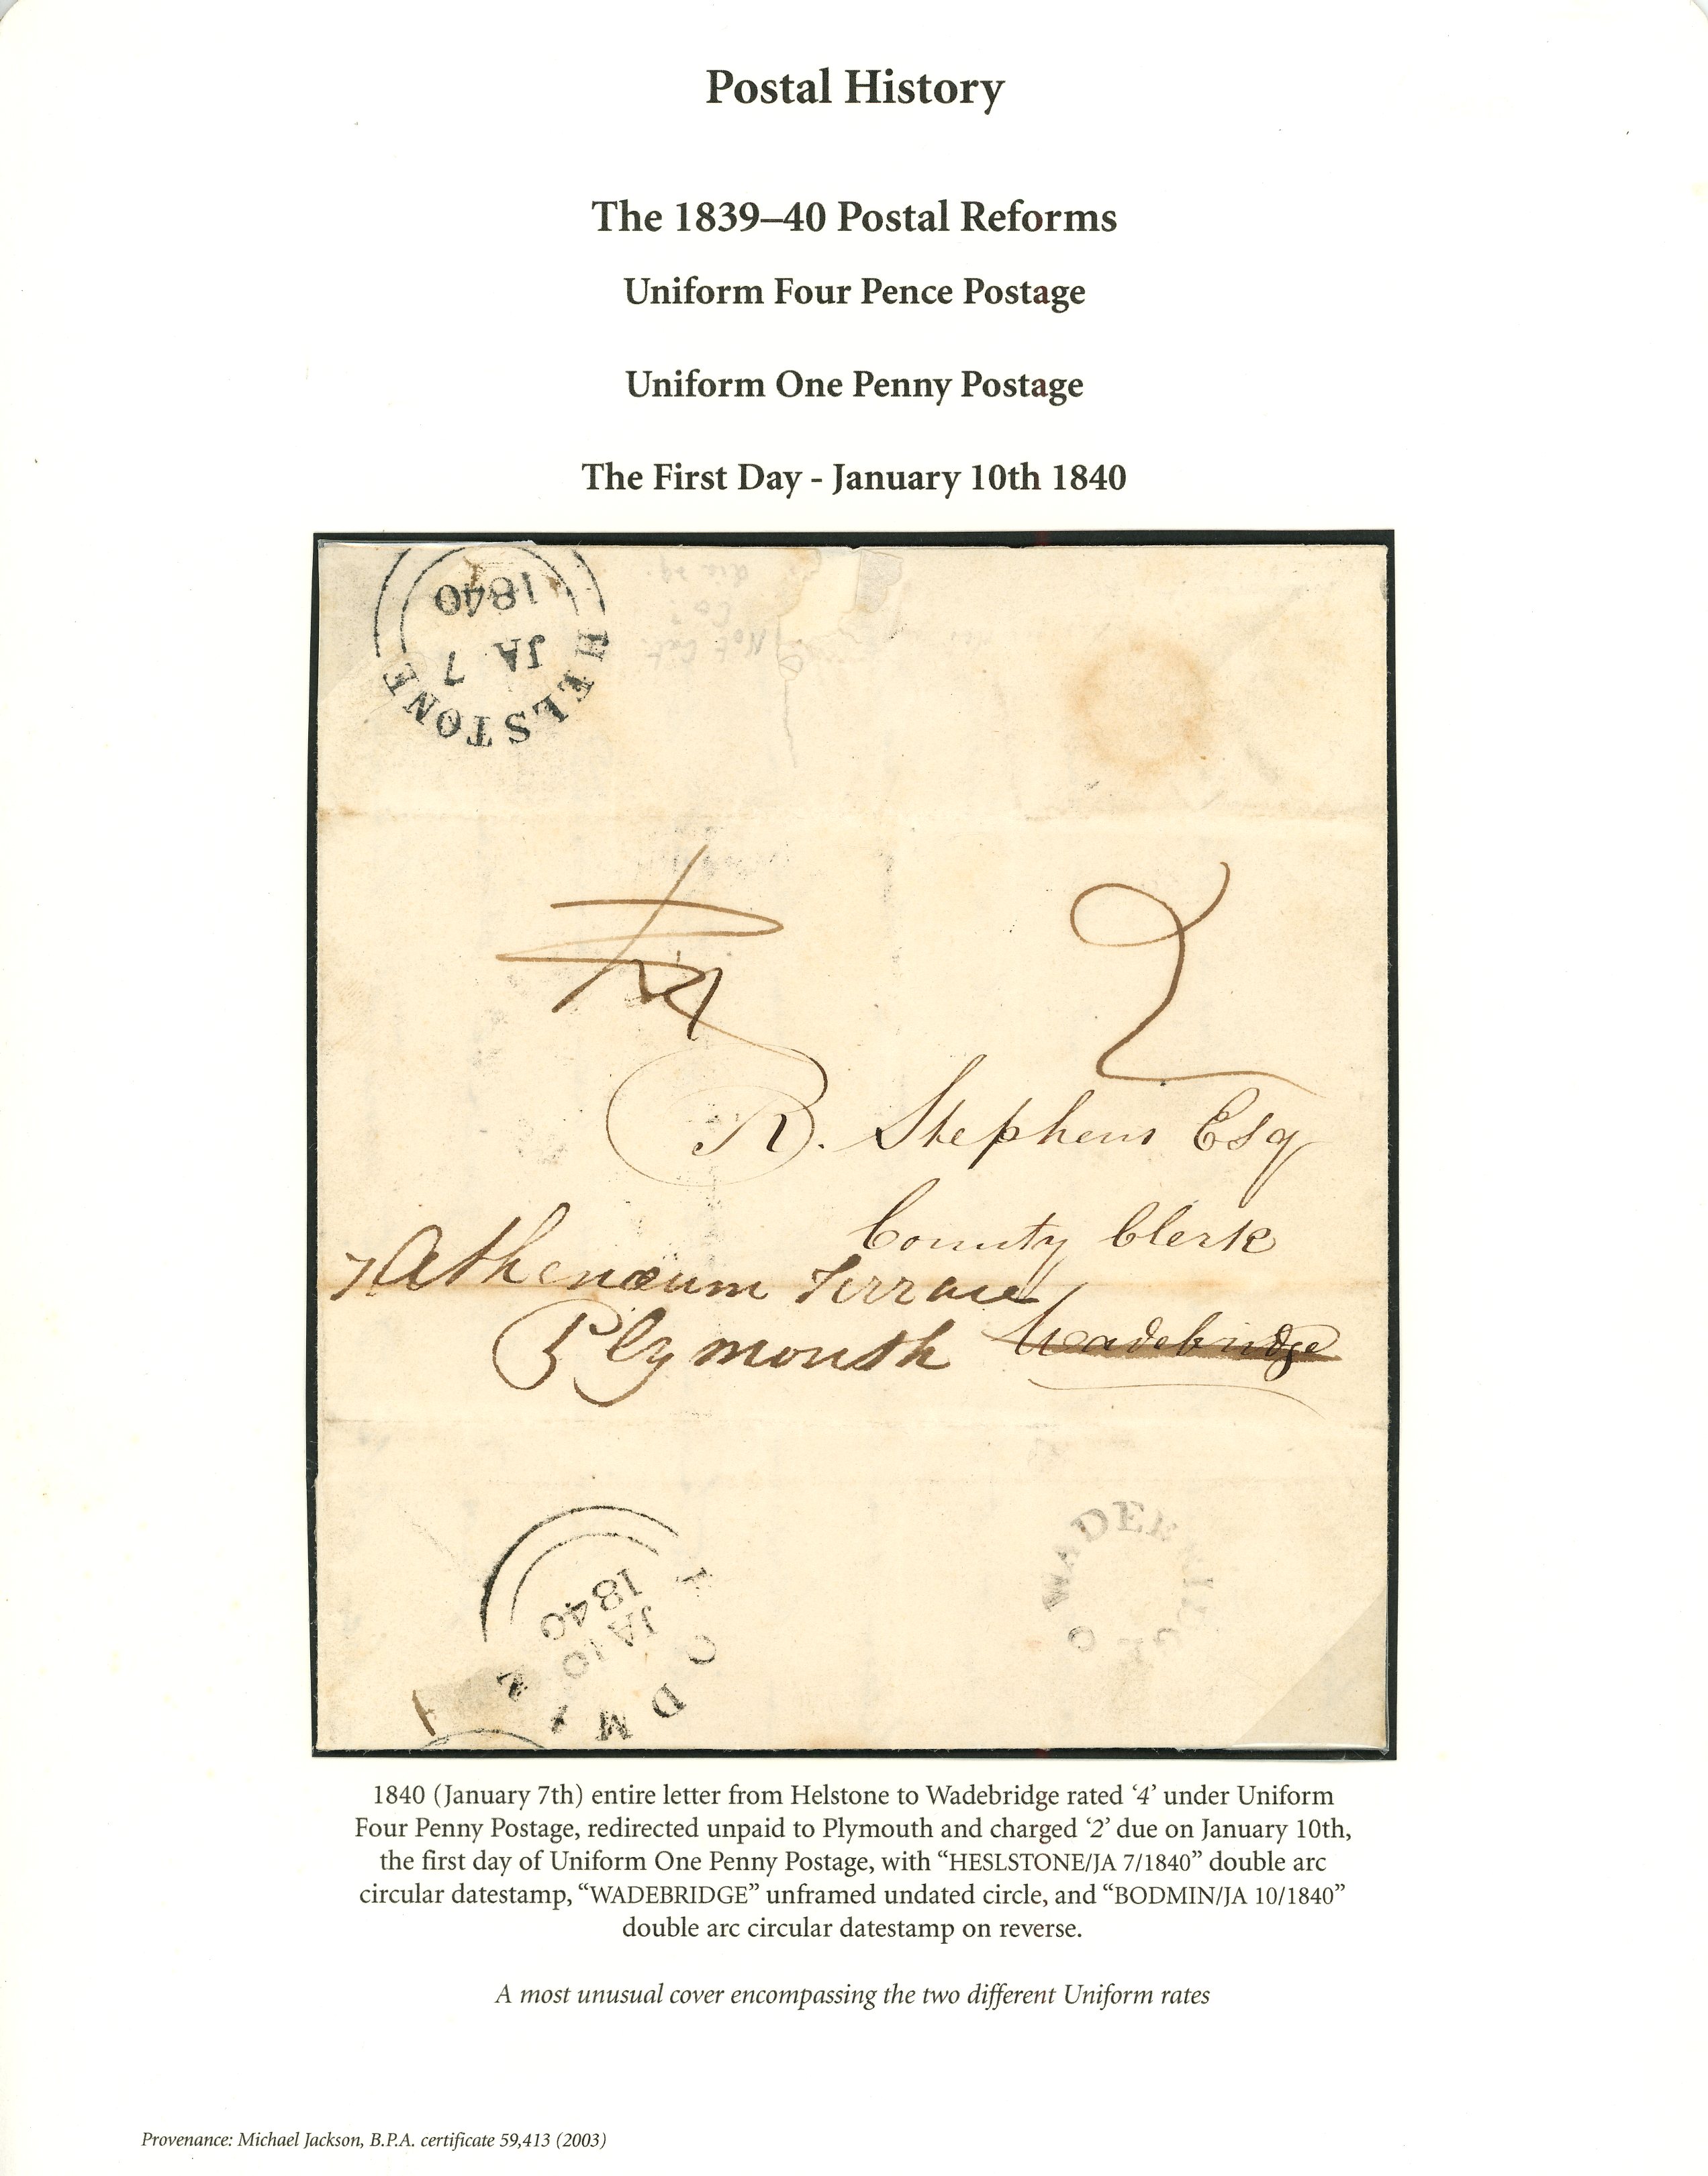 Postal History
The 1839–40 Postal Reforms
Uniform Four Pence Postage
Uniform One Penny Postage
The First Day - January 10th 1840
HELSTONE
JA 7
1840
2
R. Stephens Esq
County Clerk
7 Athenæum Terrace
Plymouth Wadebridge
BODMIN
JA 10
1840
WADEBRIDGE
1840 (January 7th) entire letter from Helstone to Wadebridge rated ‘4’ under Uniform
Four Penny Postage, redirected unpaid to Plymouth and charged ‘2’ due on January 10th,
the first day of Uniform One Penny Postage, with “HESLSTONE/JA 7/1840” double arc
circular datestamp, “WADEBRIDGE” unframed undated circle, and “BODMIN/JA 10/1840”
double arc circular datestamp on reverse.
A most unusual cover encompassing the two different Uniform rates
Provenance: Michael Jackson, B.P.A. certificate 59,413 (2003)